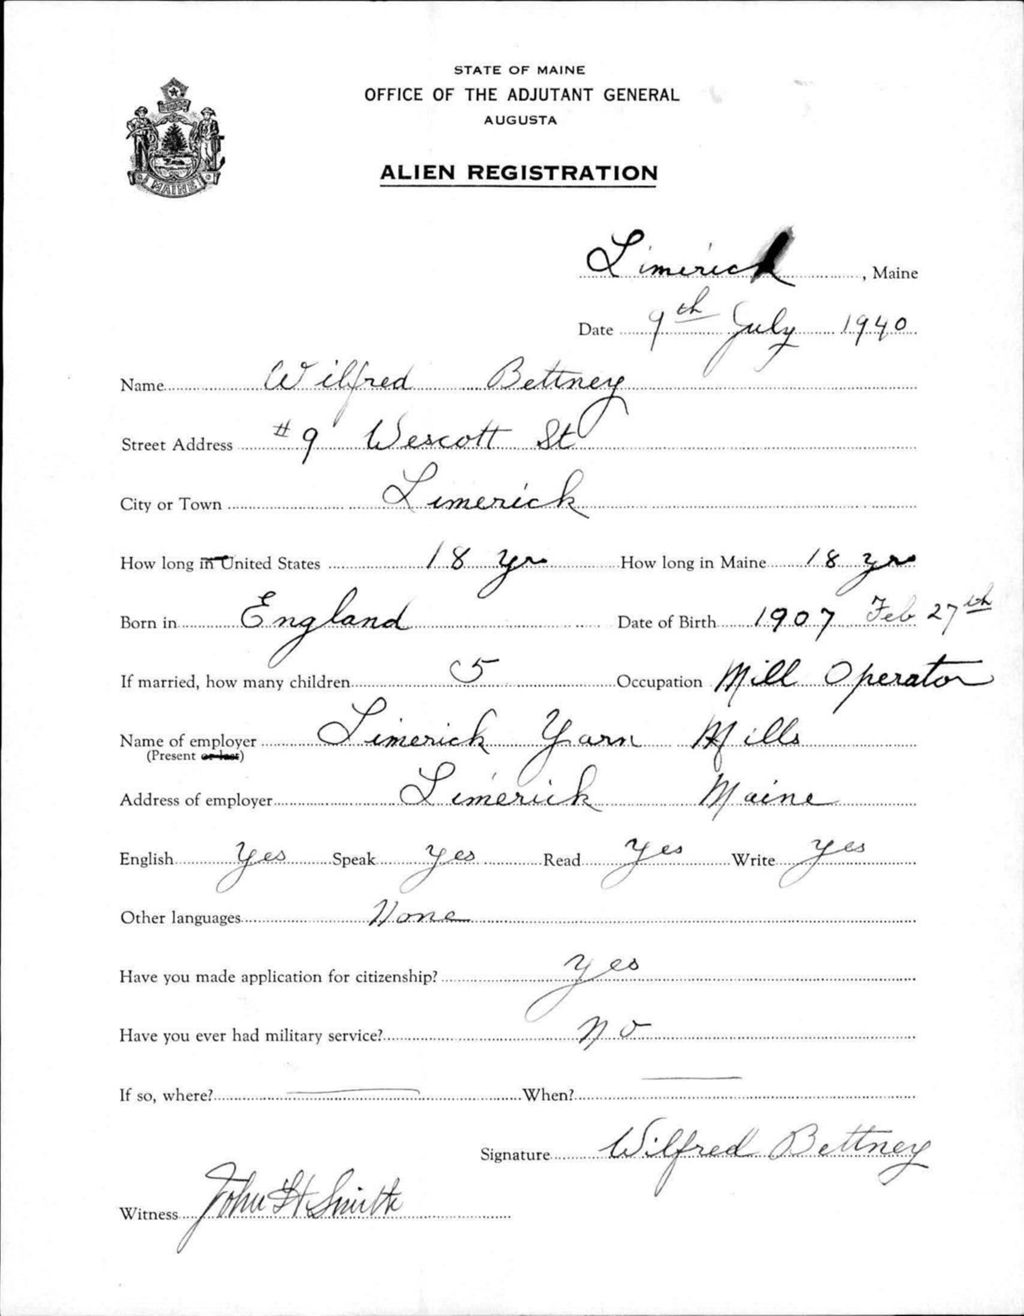 STATE OF MAINE
OFFICE OF THE ADJUTANT GENERAL
AUGUSTA
ALIEN REGISTRATION
MAINE
Limerick, Maine
Date 9th July 1940
Name Wilfred Bettney
Street Address #9 Wescott St
City or Town Limerick
How long in United States 18 yr How long in Maine 18 yr
Born in England Date of Birth 1907 Feb 27th
If married, how many children 5 Occupation Mill Operator
Name of employer Limerick Yarn Mills
(Present or last)
Address of employer Limerick Maine
English Yes Speak Yes Read Yes Write Yes
Other languages None
Have you made application for citizenship? Yes
Have you ever had military service? No
If so, where? When?
Signature Wilfred Bettney
Witness John H Smith